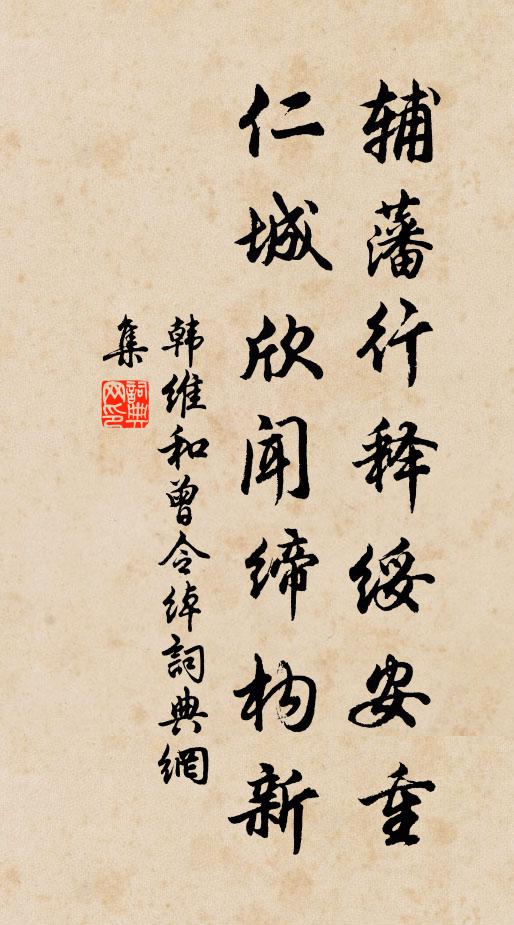 辅藩行释绥安重
仁城欣闻缔构新
韩维和曾令绰詞典網
集
詞典网印